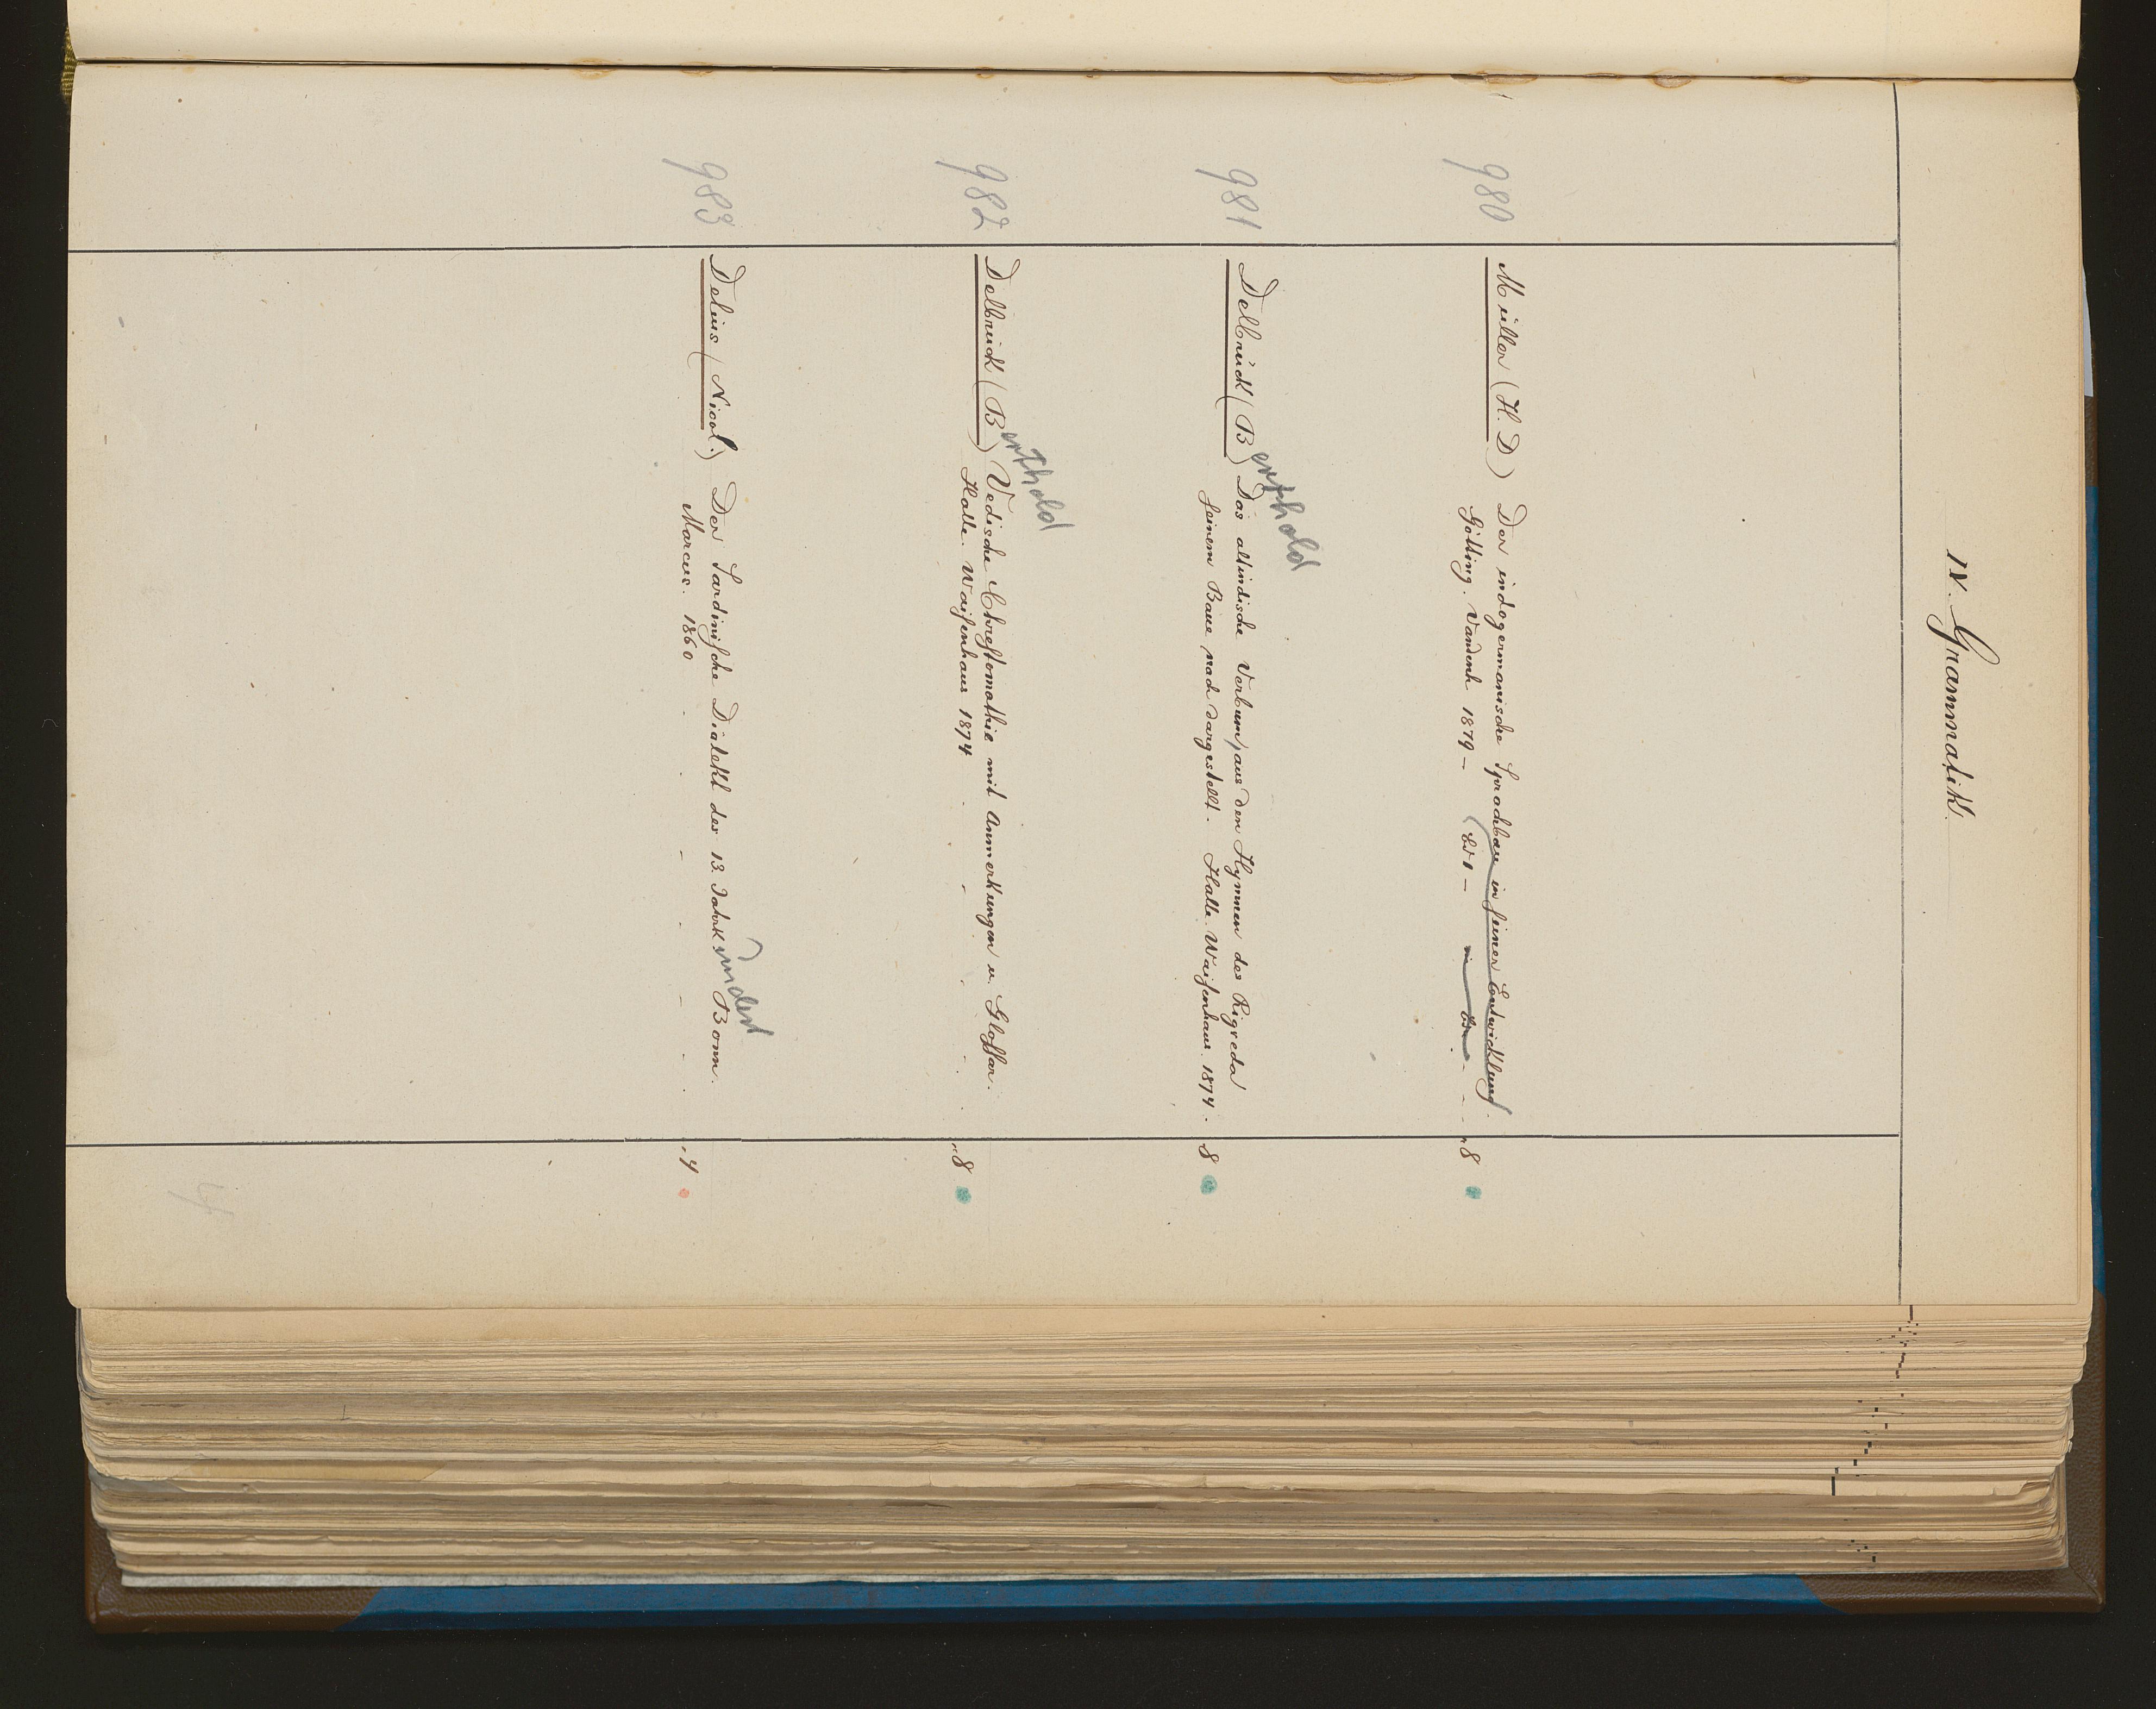 IV. Grammatik.
980 Müller (H. D) Der indogermanische Sprachbau in seiner Entwicklung.
Götting. Vandenh 1879 — (Bd 1 — 8
981 Delbrück (Berthold) Das altindische Verbum, aus den Hymnen des Rigveda
seinem Baue nach dargestellt. Halle. Waisenhaus. 1874. 8
982 Delbrück (Berthold) Vedische Chrestomathie mit Anmerkungen u. Glossar.
Halle. Waisenhaus 1874 8
983 Delius (Nicol.) Der Sardinische Dialekt des 13. Jahrhundert Bonn.
Marcus. 1860 4
4